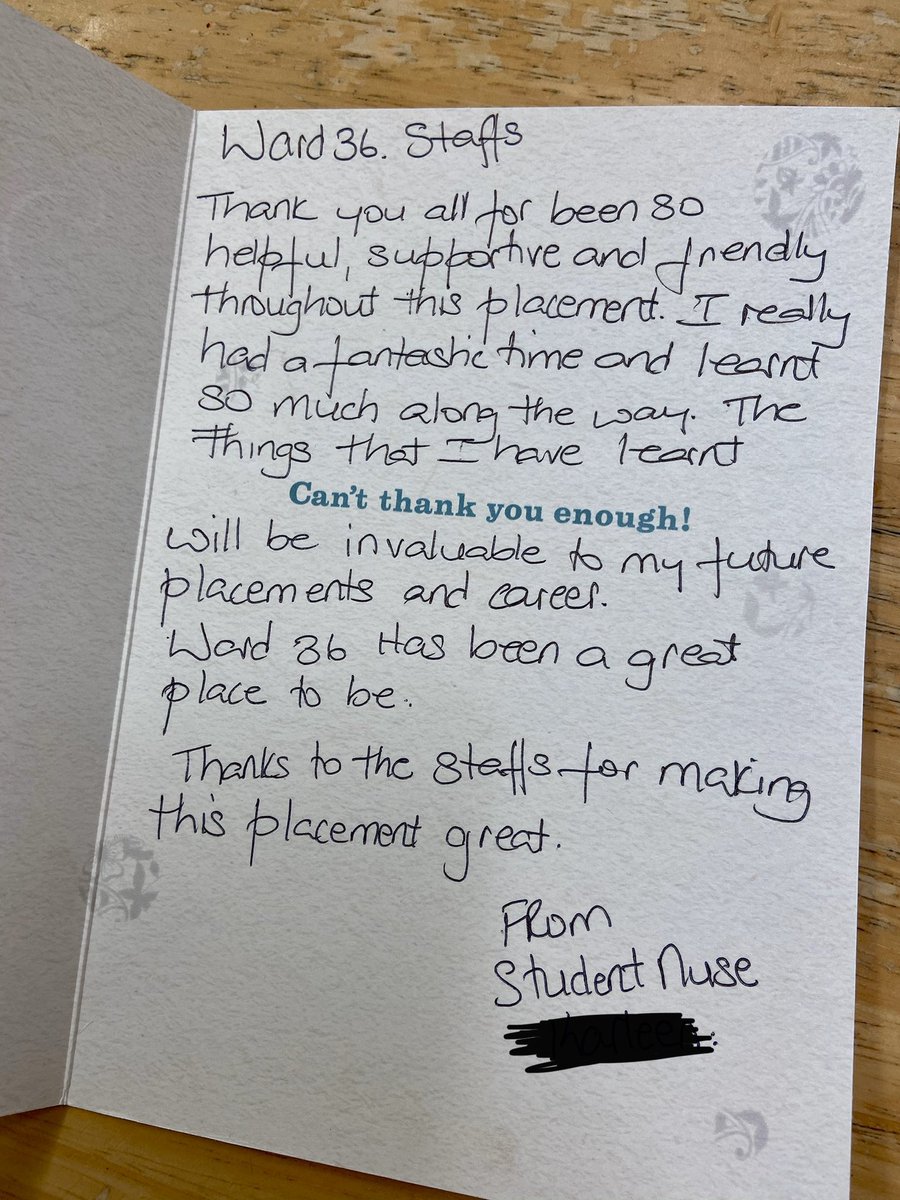 Ward 36. Staffs
Thank you all for been so
helpful, supportive and friendly
throughout this placement. I really
had a fantastic time and learnt
so much along the way. The
things that I have learnt
Can't thank you enough!
will be invaluable to my future
placements and career.
Ward 36 Has been a great
place to be.
Thanks to the staffs for making
this placement great.
From
Student Nuse